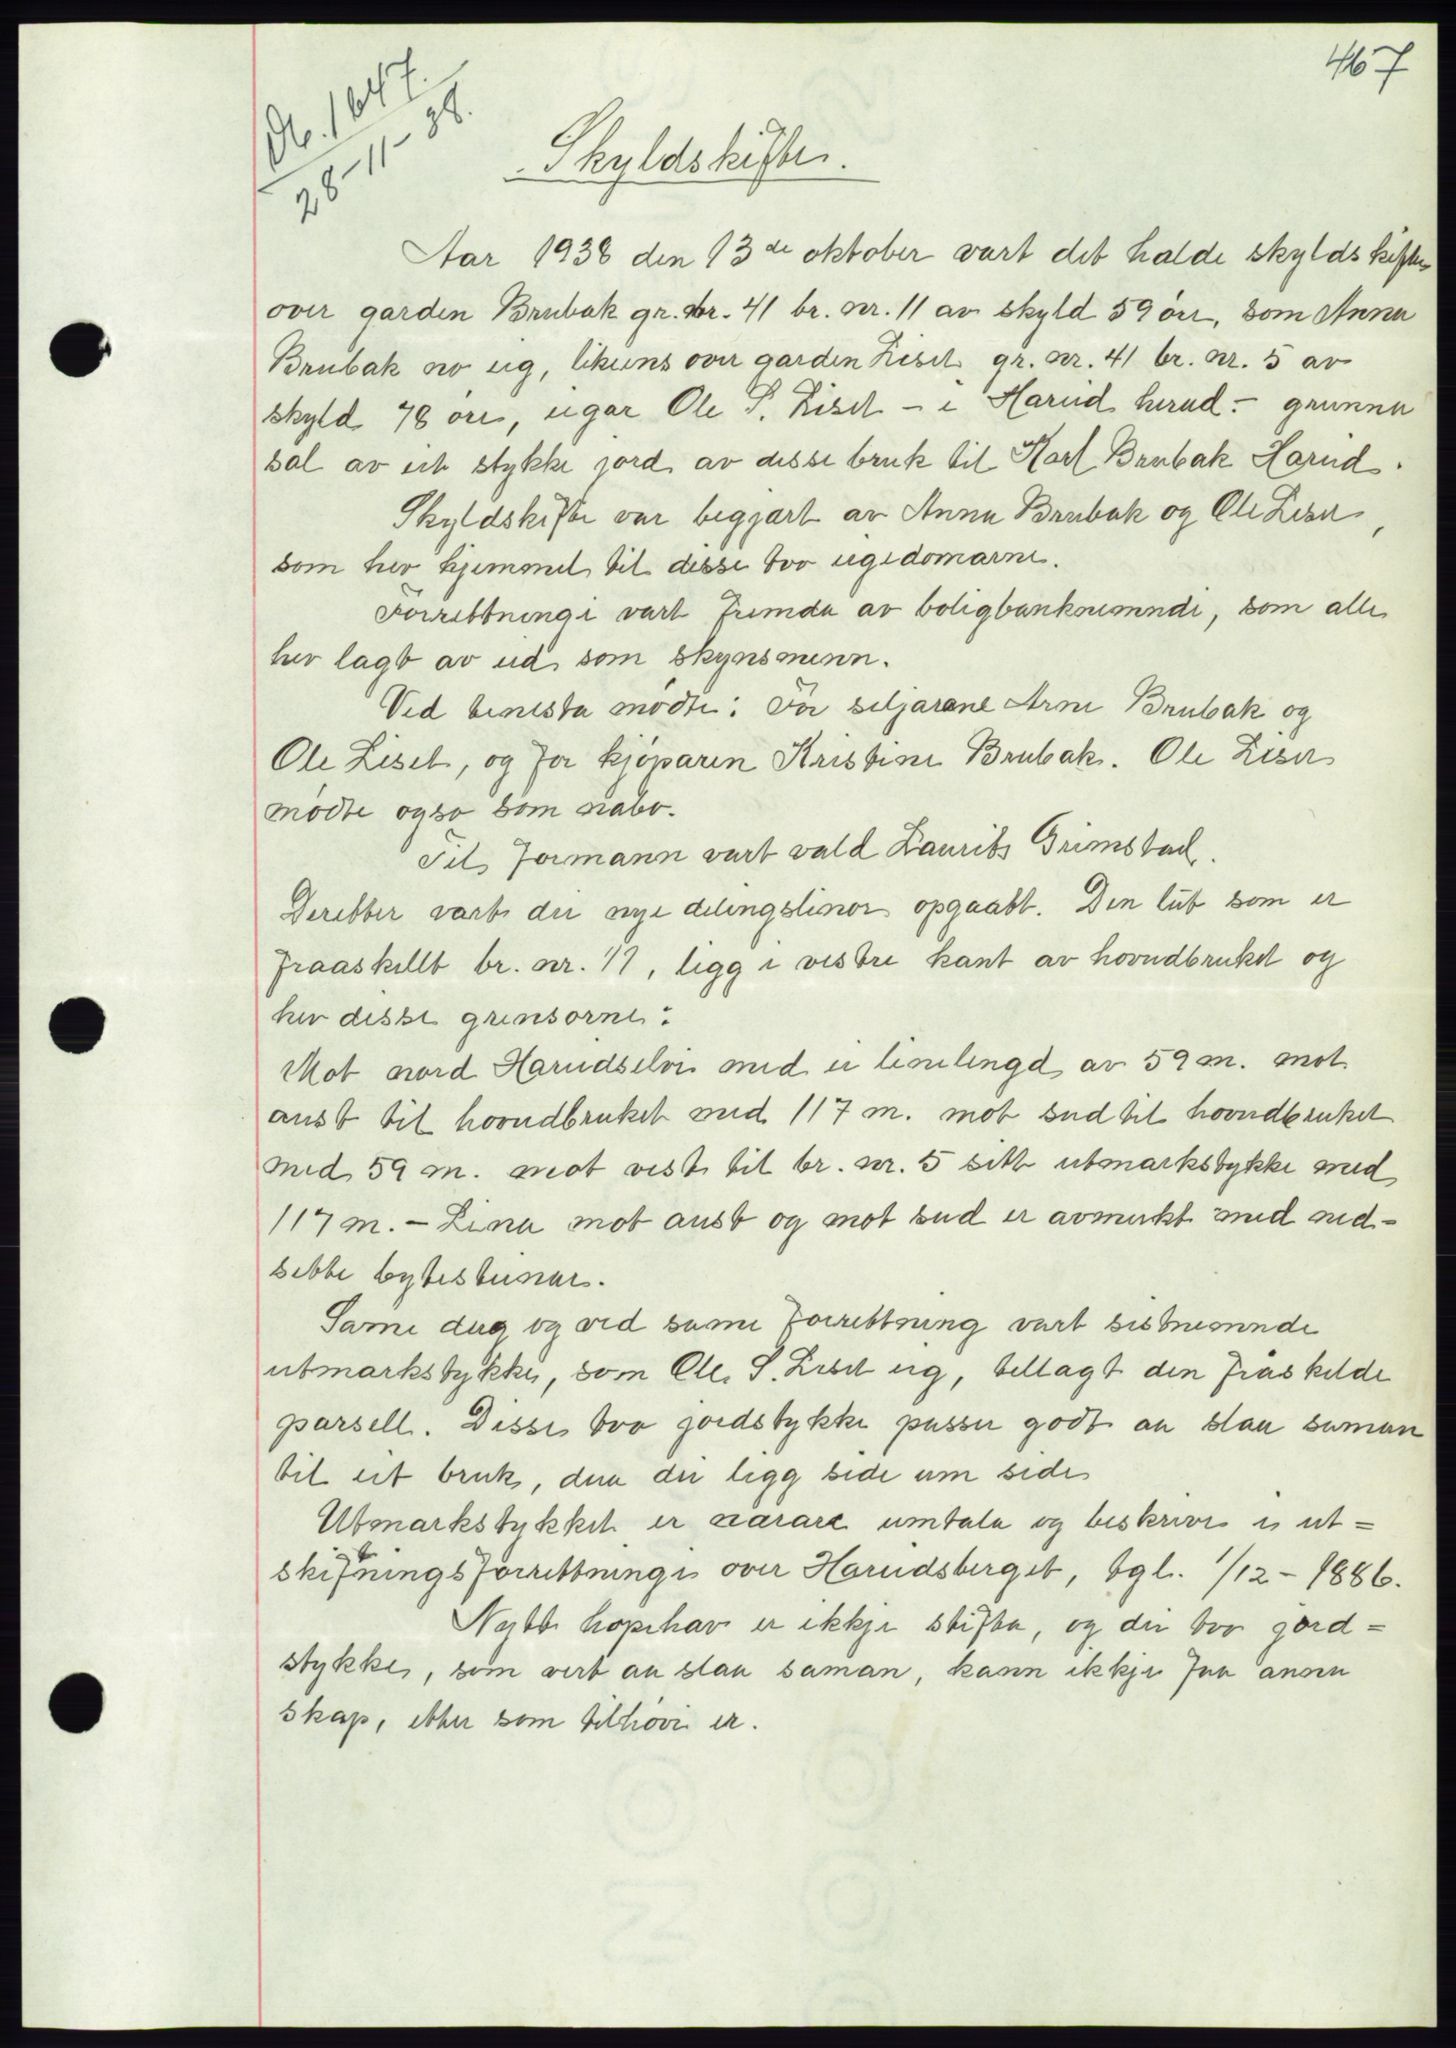 467
Db. 1647.
28-11-38.
Skyldskifte.
Aar 1938 den 13de oktober vart det halde skyldskifte
over garden Brubak gr. nr. 41 br. nr. 11 av skyld 59 öre, som Anna
Brubak no eig, likeeins over garden Liset gr. nr. 41 br. nr. 5 av
skyld 78 öre, eigar Ole S. Liset – i Hareid herad. – grunna
sal av eit stykke jord av desse bruk til Karl Brubak Hareid.
Skyldskifte var begjært av Anna Brubak og Ole Liset,
som hev hjemmel til desse tvo eigedomarne.
Forrettningi vart fremda av boligbanknemndi, som alle
hev lagt av eid som skynsmenn.
Ved tenesta mödte: For seljarane Arne Brubak og
Ole Liset, og for kjöparen Kristine Brubak. Ole Liset
mödte ogso som nabo.
Til formann vart vald Laurits Grimstad.
Deretter vart dei nye delingslinor opgaatt. Den lut som er
fraaskillt br. nr. 11, ligg i vestre kant av hovudbruket og
hev desse grensorne:
Mot nord Hareidselvi med ei linelengd av 59 m. mot
aust til hovudbruket med 117 m. mot sud til hovudbruket
med 59 m. mot vest til br. nr. 5 sitt utmarkstykke med
117 m. – Lina mot aust og mot sud er avmerkt med ned-
sette bytesteinar.
Same dag og ved same forrettning vart sistnemnde
utmarkstykke, som Ole S. Liset eig, tillagt den fråskilde
parsell. Desse tvo jordstykke passer godt aa slaa saman
til eit bruk, daa dei ligg side um side
Utmarkstykket er nærare umtala og beskrive i ut=
skiftningsforrettningi over Hareidsberget, tgl. 1/12 – 1886.
Nytt hopehav er ikkje stifta, og dei tvo jord=
stykke, som vert aa slaa saman, kann ikkje faa anna
skap, etter som tilhövi er.